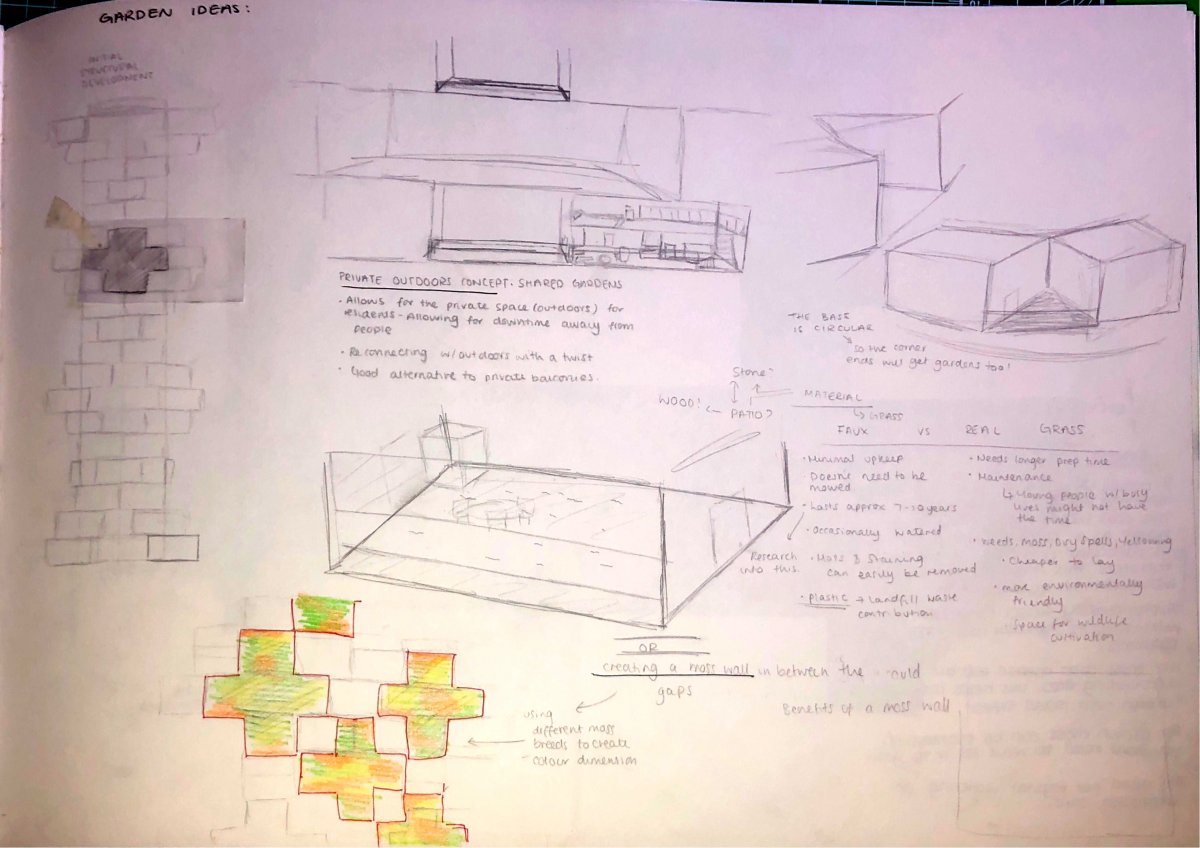 GARDEN IDEAS:
INITIAL
STRUCTURAL
DEVELOPMENT
PRIVATE OUTDOORS CONCEPT - SHARED GARDENS
· Allows for the private space (outdoors) for
residents - Allowing for downtime away from
people
· Reconnecting w/outdoors with a twist
· Good alternative to private balconies.
THE BASE
IS CIRCULAR
so the corner
ends will get gardens too!
Stone?
WOOD?
PATIO?
MATERIAL
GRASS
FAUX VS REAL GRASS
· Minimal upkeep
· Doesnt need to be
mowed
· Lasts approx 7-10 years
· Occasionally watered
Research
into this.
· & Staining
can easily be removed
· plastic → landfill waste
contribution
· Needs longer prep time
· Maintenance
↳ Young people w/ busy
lives might not have
the time
· Weeds, moss, Dry Spells, Yellowing
· Cheaper to lay
· more environmentally
friendly
· Space for wildlife
cultivation
OR
creating a moss wall in between the
gaps
using
different moss
breeds to create
colour dimension
Benefits of a moss wall